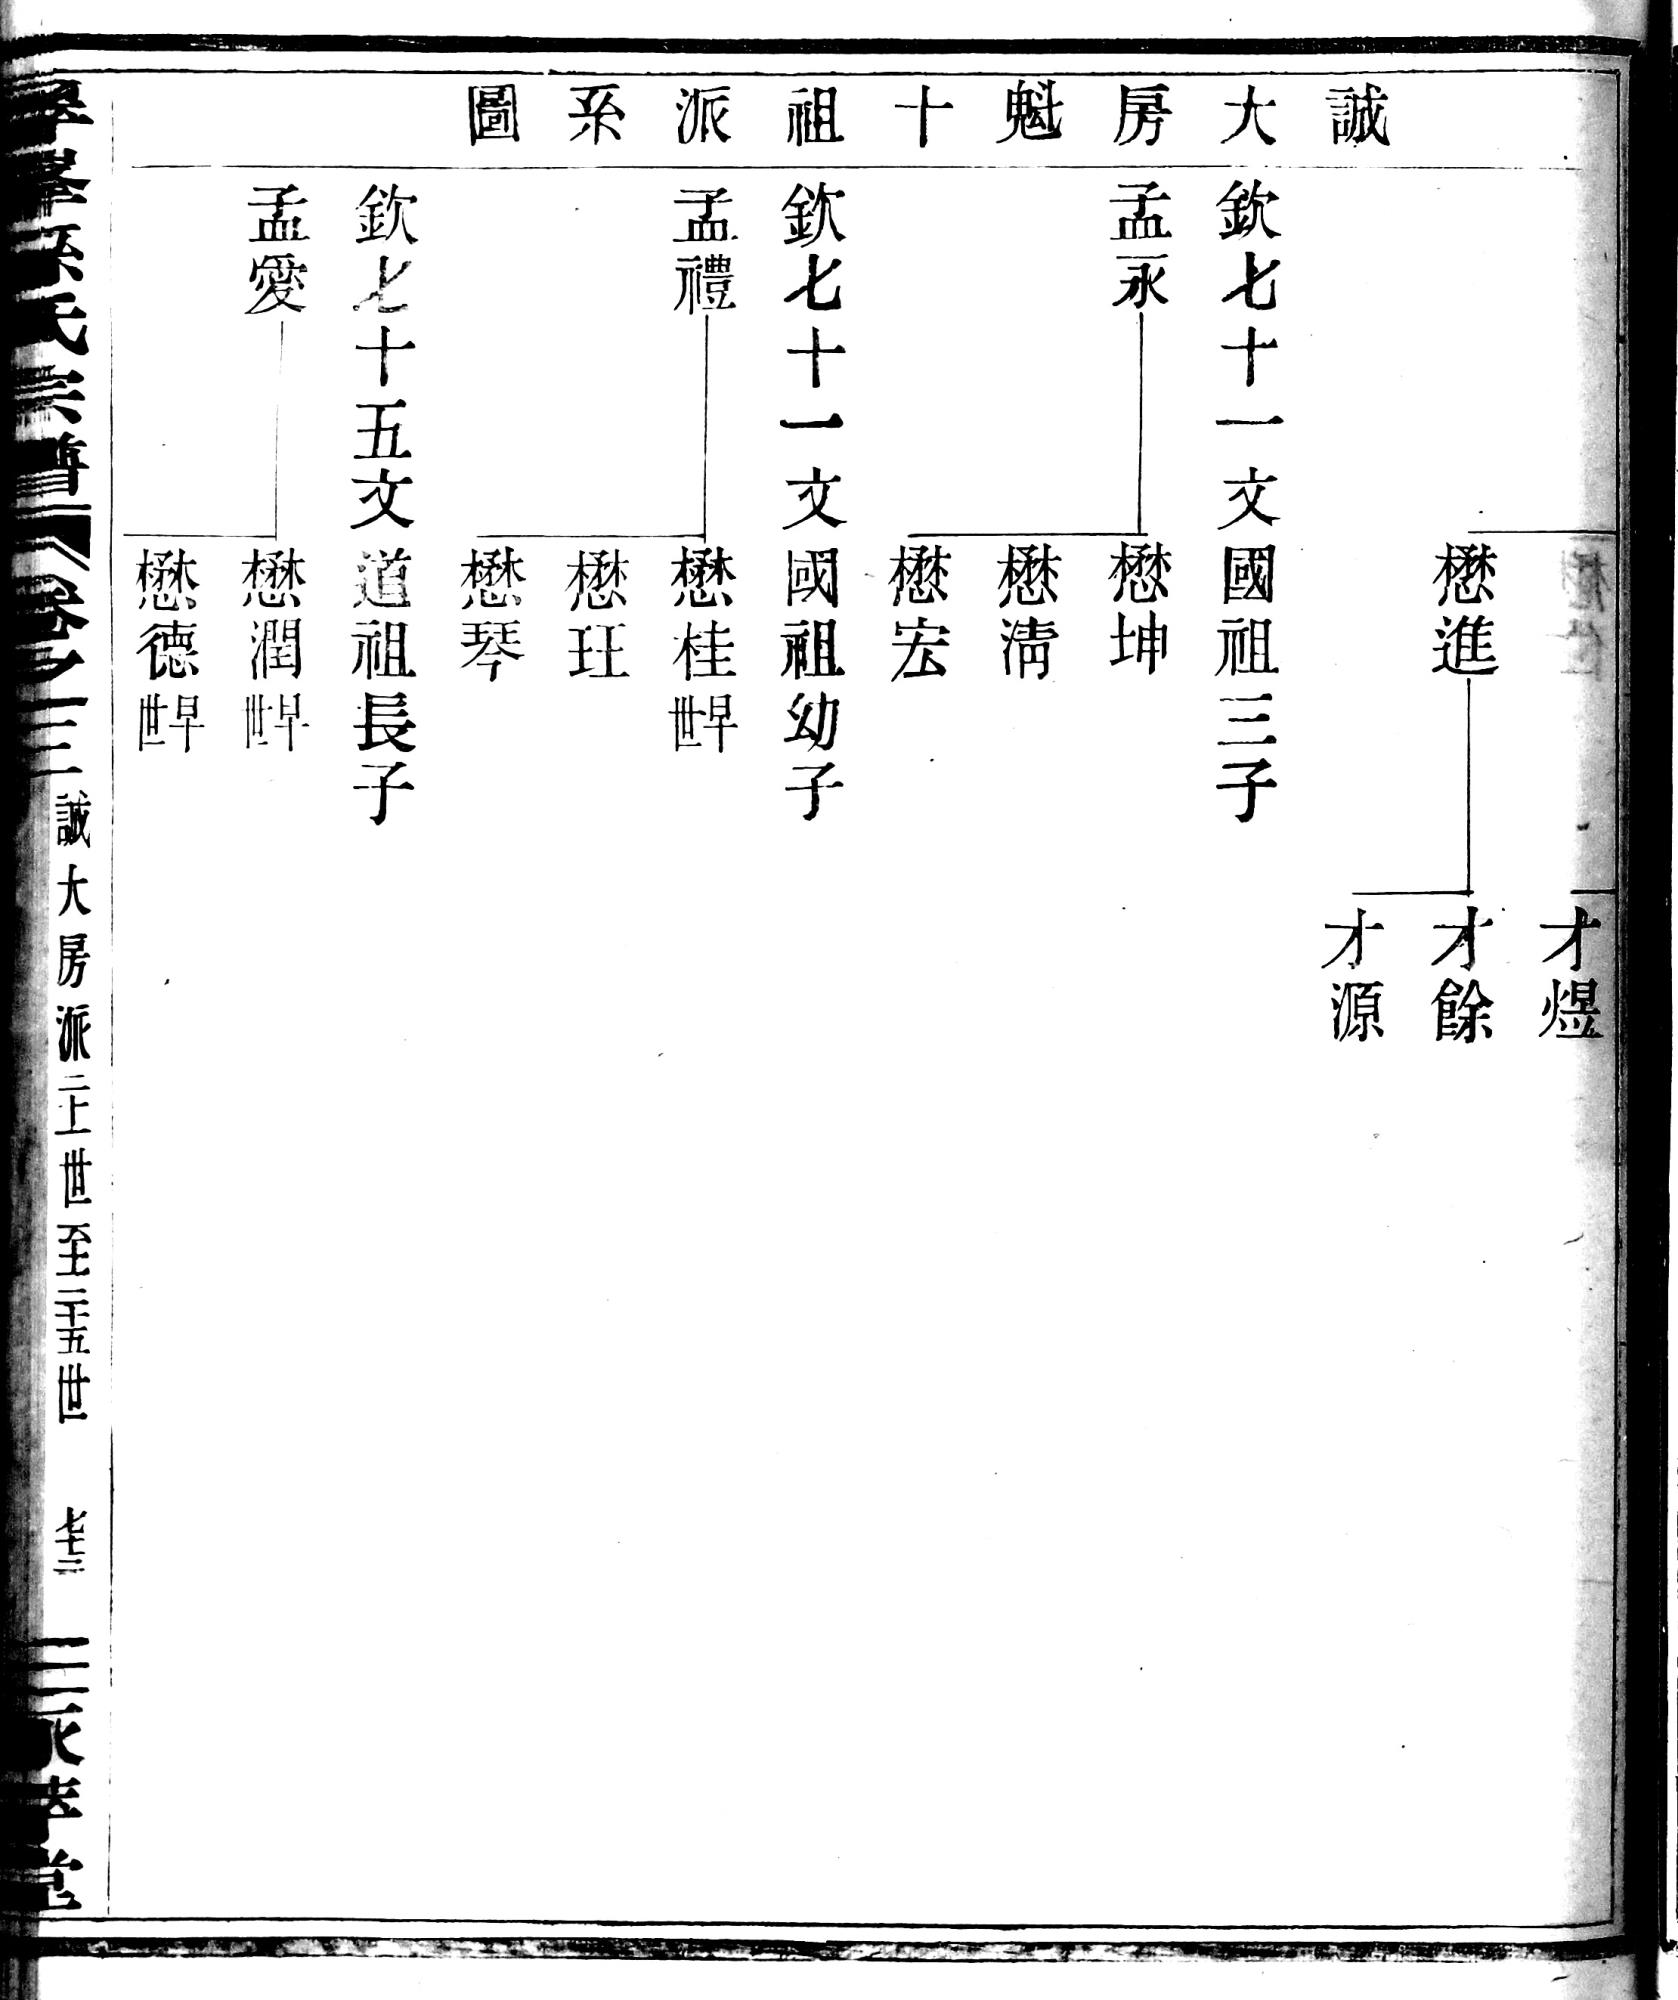 誠大房魁十祖派系圖
才煜
懋進
才餘
才源
欽七十一文國祖三子
孟永
懋坤
懋淸
懋宏
欽七十一文國祖幼子
孟禮
懋桂早世
懋玨
懋琴
欽七十五文道祖長子
孟愛
懋潤早世
懋德早世
孫氏宗譜 卷之三 誠大房派二十一世至二十五世 七十三 永孝堂